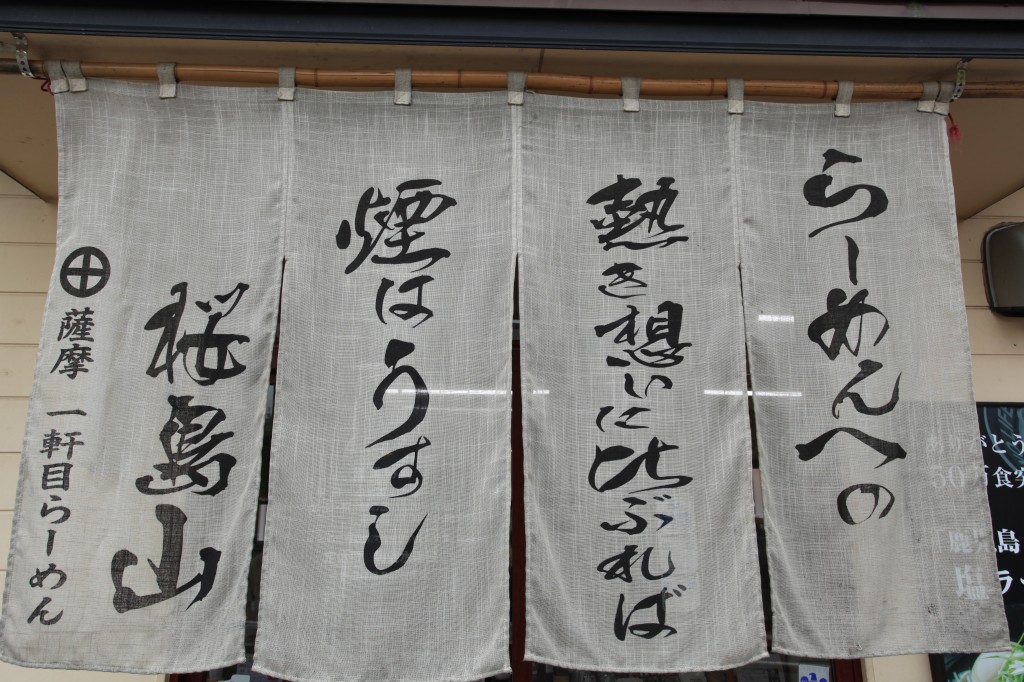 らーめんへの
熱き想いに比ぶれば
煙はうすし
桜島山
薩摩 一軒目らーめん
とう
50
食
島
塩ラ